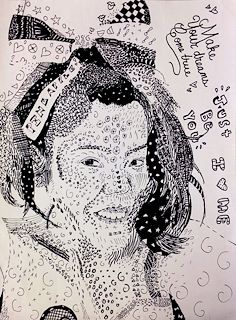 Make
Your dreams
Come true
Just
Be
You!
I ♡ ME